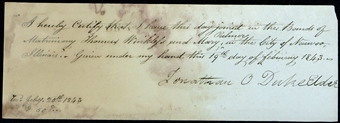 I hereby Certify that I have this day joined in the Bands of
Matrimony Thomas and Mary Palmer in the City of Nauvoo,
Illinois. Given under my hand this 19th day of february 1843.
Jonathan O Duke Elder
Feby 20th 1843